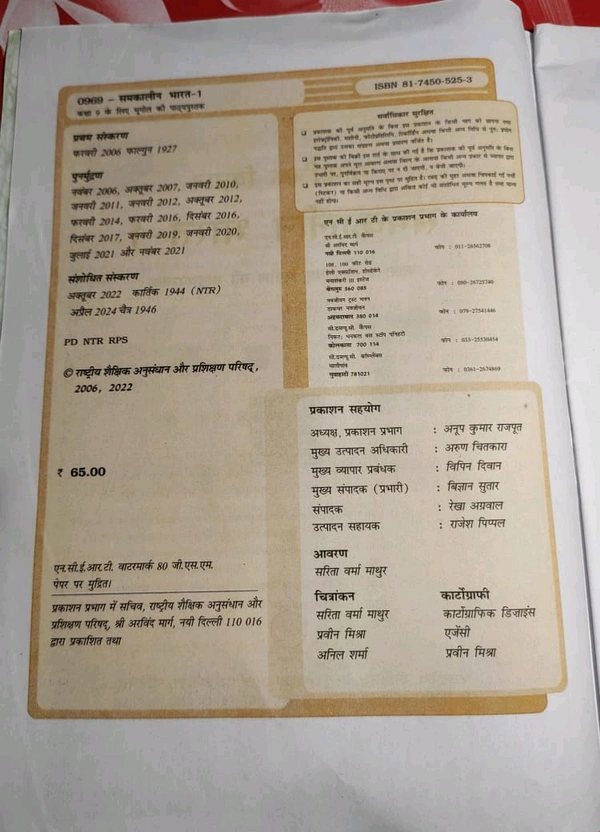 0969 – समकालीन भारत-1
कक्षा 9 के लिए भूगोल की पाठ्यपुस्तक
ISBN 81-7450-525-3
प्रथम संस्करण
फरवरी 2006 फाल्गुन 1927
पुनर्मुद्रण
नवंबर 2006, अक्तूबर 2007, जनवरी 2010,
जनवरी 2011, जनवरी 2012, अक्तूबर 2012,
फरवरी 2014, फरवरी 2016, दिसंबर 2016,
दिसंबर 2017, जनवरी 2019, जनवरी 2020,
जुलाई 2021 और नवंबर 2021
संशोधित संस्करण
अक्तूबर 2022 कार्तिक 1944 (NTR)
अप्रैल 2024 चैत्र 1946
PD NTR RPS
© राष्ट्रीय शैक्षिक अनुसंधान और प्रशिक्षण परिषद्,
2006, 2022
₹ 65.00
एन.सी.ई.आर.टी. वाटरमार्क 80 जी.एस.एम.
पेपर पर मुद्रित।
प्रकाशन प्रभाग में सचिव, राष्ट्रीय शैक्षिक अनुसंधान और
प्रशिक्षण परिषद्, श्री अरविंद मार्ग, नयी दिल्ली 110 016
द्वारा प्रकाशित तथा
सर्वाधिकार सुरक्षित
एन सी ई आर टी के प्रकाशन प्रभाग के कार्यालय
एन.सी.ई.आर.टी. कैंपस
श्री अरविंद मार्ग
नयी दिल्ली 110 016 फोन : 011-26562708
108, 100 फीट रोड
बेंगलुरु 560 085 फोन : 080-26725740
नवजीवन ट्रस्ट भवन
डाकघर नवजीवन
अहमदाबाद 380 014 फोन : 079-27541446
सी.डब्ल्यू.सी. कैंपस
कोलकाता 700 114 फोन : 033-25530454
सी.डब्ल्यू.सी. कॉम्प्लैक्स
मालीगांव
गुवाहाटी 781021 फोन : 0361-2674869
प्रकाशन सहयोग
अध्यक्ष, प्रकाशन प्रभाग : अनूप कुमार राजपूत
मुख्य उत्पादन अधिकारी : अरुण चितकारा
मुख्य व्यापार प्रबंधक : विपिन दिवान
मुख्य संपादक (प्रभारी) : बिज्ञान सुतार
संपादक : रेखा अग्रवाल
उत्पादन सहायक : राजेश पिप्पल
आवरण
सरिता वर्मा माथुर
चित्रांकन कार्टोग्राफी
सरिता वर्मा माथुर कार्टोग्राफिक डिज़ाइंस
प्रवीन मिश्रा एजेंसी
अनिल शर्मा प्रवीन मिश्रा